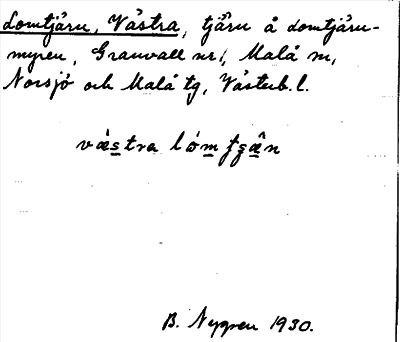 Lomtjärn, Västra, tjärn å Lomtjärn-
myren, Granvall nr 1, Malå sn,
Norsjö och Malå tg, Västerb. l.
västra lómtʂæ̂n
B. Nygren 1930.